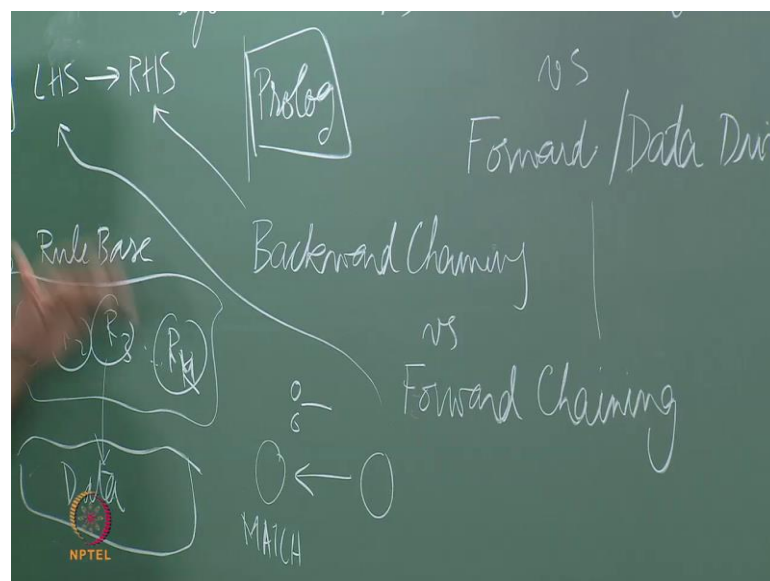 LHS → RHS
Prolog
vs
Forward / Data Dri
Rule Base
Backward Chaining
vs
Forward Chaining
R2 R3 . . RN
Data
MATCH
NPTEL